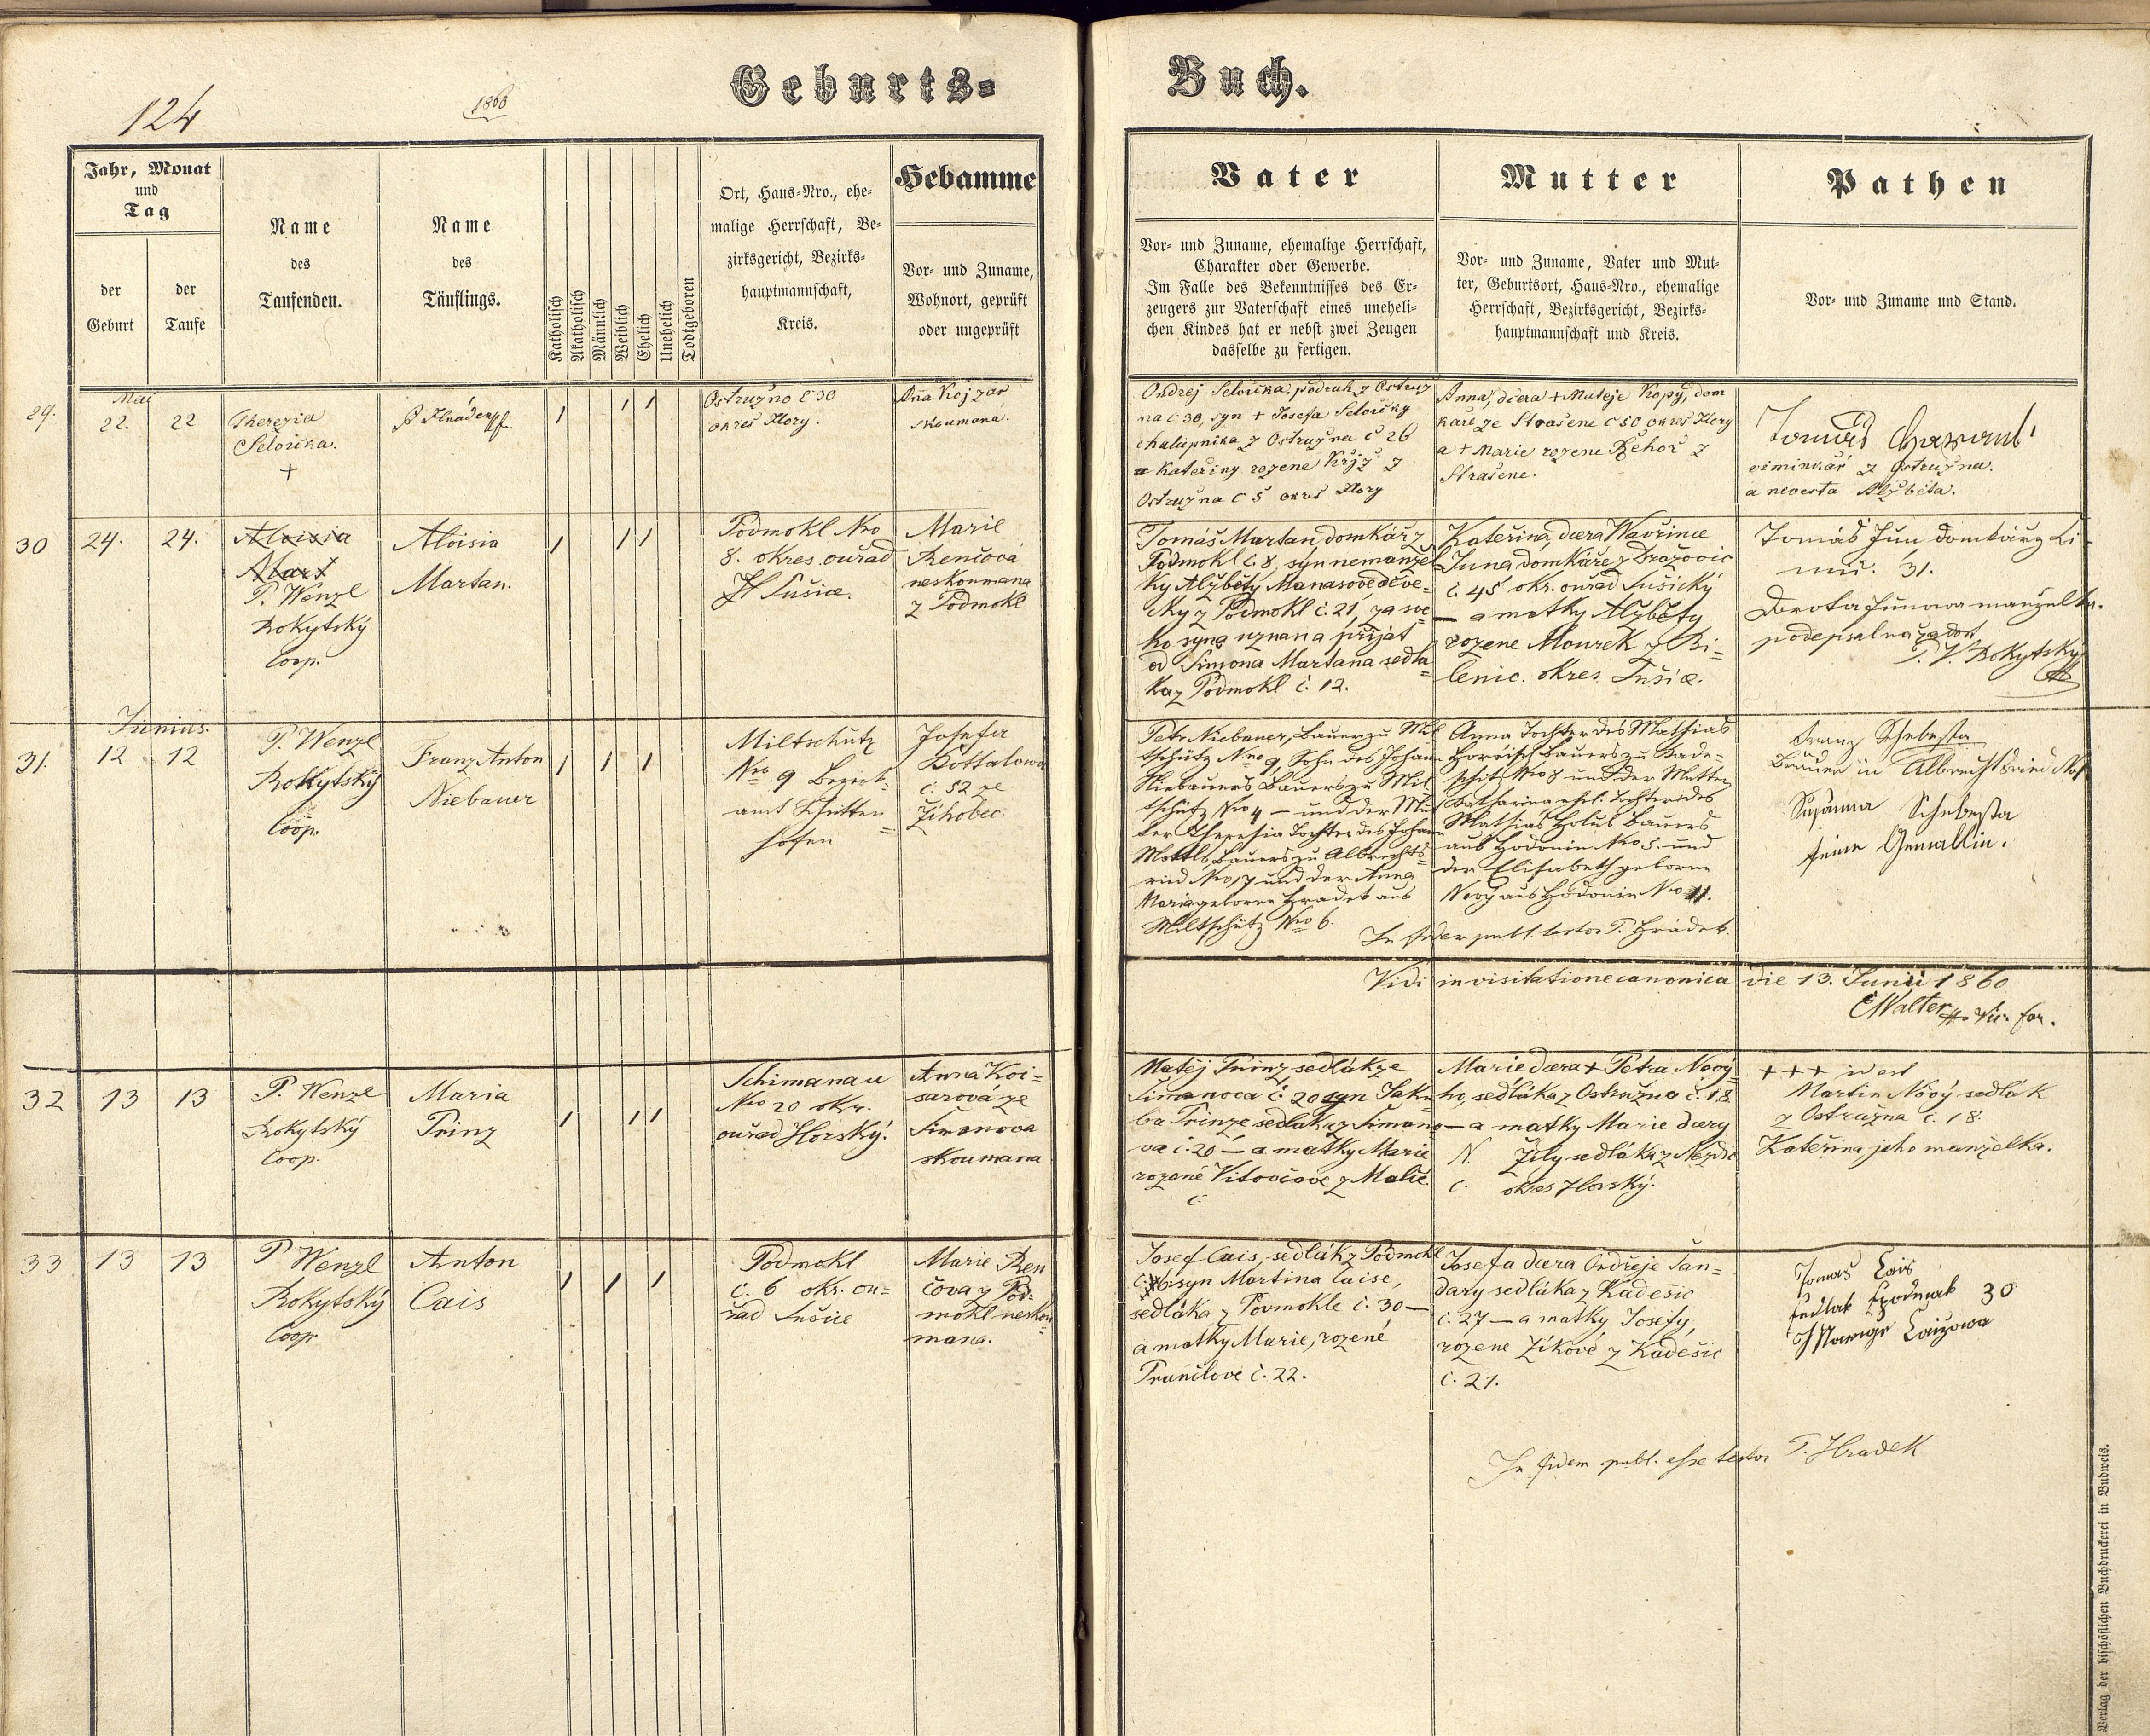 Geburts= Buch.
124
1860
Jahr, Monat
und
Tag
der
Geburt
der
Taufe
Name
des
Taufenden.
Name
des
Täuflings.
Katholisch
Akatholisch
Männlich
Weiblich
Ehelich
Unehelich
Todtgeboren
Ort, Haus=Nro., ehe=
malige Herrschaft, Be=
zirksgericht, Bezirks=
hauptmannschaft,
Kreis.
Hebamme
Vor= und Zuname,
Wohnort, geprüft
oder ungeprüft
Vater
Vor= und Zuname, ehemalige Herrschaft,
Charakter oder Gewerbe.
Im Falle des Bekenntnisses des Er=
zeugers zur Vaterschaft eines uneheli=
chen Kindes hat er nebst zwei Zeugen
dasselbe zu fertigen.
Mutter
Vor= und Zuname, Vater und Mut=
ter, Geburtsort, Haus=Nro., ehemalige
Herrschaft, Bezirksgericht, Bezirks=
hauptmannschaft und Kreis.
Pathen
Vor= und Zuname und Stand.
29.
Mai
22.
22
Therezia
Selovička.
+
Ostružno č 30
okres Hory.
skoumana.
Ondrej Selovička, podruh z Ostruž
na č 30, syn + Josefa Selovičky
chalupnika z Ostružna č 26
a Kateřiny rozene Křiž z
Ostružna č 5 okres Hory
Anna, dcera + Mateje Kopy, dom
kaře ze Strašene č 50 okres Hory
a + Marie rozene Řehoř z
Strašene.
Tomáš
viminkář z Ostružna.
a nevesta Alžběta.
30
24.
24.
Aloisia
Mart
P. Wenzl
Rokytský
Coop.
Aloisia
Martan.
Podmokl Nro
8. okres. ouřad
Sušice.
Marie
Renčová
neskoumana
z Podmokl
Tomáš Martan, domkář z
Podmokl č. 8, syn nemanžel
ky Alžběty Manasové děve=
čky z Podmokl č. 21, za sve
ho syna uznan a přijat
od Šimona Martana sedla=
ka z Podmokl č. 12.
Kateřina, dcera Wavřince
Juna domkáře z Dražovic
č. 45 okr. ouřad Sušický
— a matky Alžběty
rozene Mourek z Bi=
lenic. okres. Sušice.
Tomáš Jun domkář z Li
31.
Dorota Junowa manzelka.
podepsal na žadost
P. W. Rokytský
31.
Junius.
12
12
P. Wenzl
Rokytský
Coop.
Franz Anton
Niebauer
Miltschütz
Nro 9 Bezirk=
amt Schütten=
hofen
Josefa
Bottalowa
č. 52 ze
Žihobec
Petr Niebauer, Bauer zu Mil
tschütz Nro 9, Sohn des Johann
Niebauers Bauers zu Mil
tschütz Nro 4 — und der Mut
ter Theresia Tochter des Johann
Mottls Bauers zu Albrechts=
ried Nro 17 und der Anna
Maria geborne Hradek aus
Miltschütz Nro 6.
Anna Tochter des Mathias
Horeisch Bauers zu Kade=
schitz Nro 8 und der Mutter
Katharina ehel. Tochter des
Mathias Holub Bauers
aus Hodonin Nro 5. und
der Elisabeth geborne
Nový aus Hodonin Nro 11.
Franz Schebesta
Bauer in Albrechtsried No
Susanna Schebesta
seine Gemallin.
In fidem publ. testor P. Hradek.
Vidi in visitatione canonica die 13. Junii 1860
Walter Vic. for.
32
13
13
P. Wenzl
Rokytský
Coop.
Maria
Prinz
Schimanau
Nro 20 okr.
ouřad Horský.
Anna Koi=
sarová ze
Šimanova
skoumana
Matěj Prinz sedlák ze
Šimanova č. 20 syn Jaku
ba Prinze sedlaka z Šimano
va č. 20 — a matky Marie
rozené Vitovčove z Malče.
č.
Marie dcera + Petra Nový=
ho, sedláka z Ostružna č. 18.
— a matky Marie dcery
N. Žily sedláka z Nezdic
č. okres Horský.
+++ id est
Martin Nový sedlák
z Ostružna č. 18.
Kateřina, jeho manželka.
33
13
13
P Wenzl
Rokytský
Coop.
Anton
Cais
Podmokl
č. 6 okr. ou=
řad Sušice
Marie Ren
čova z Pod=
mokl neskou=
mana.
Josef Cais, sedlák z Podmokl
č. 6 syn Martina Caise,
sedláka z Povmokle č. 30 —
a matky Marie, rozené
Prunčlove č. 22.
Josefa dcera Ondřeje Šan=
dary sedláka z Kadešic
č. 27 — a matky Josefy,
rozene Zíkové z Kadešic
č. 21.
Tomaš Cais
sedlak 30
In fidem publ. esse testor P. Hradek
Verlag der bischöflichen Buchdruckerei in Budweis.